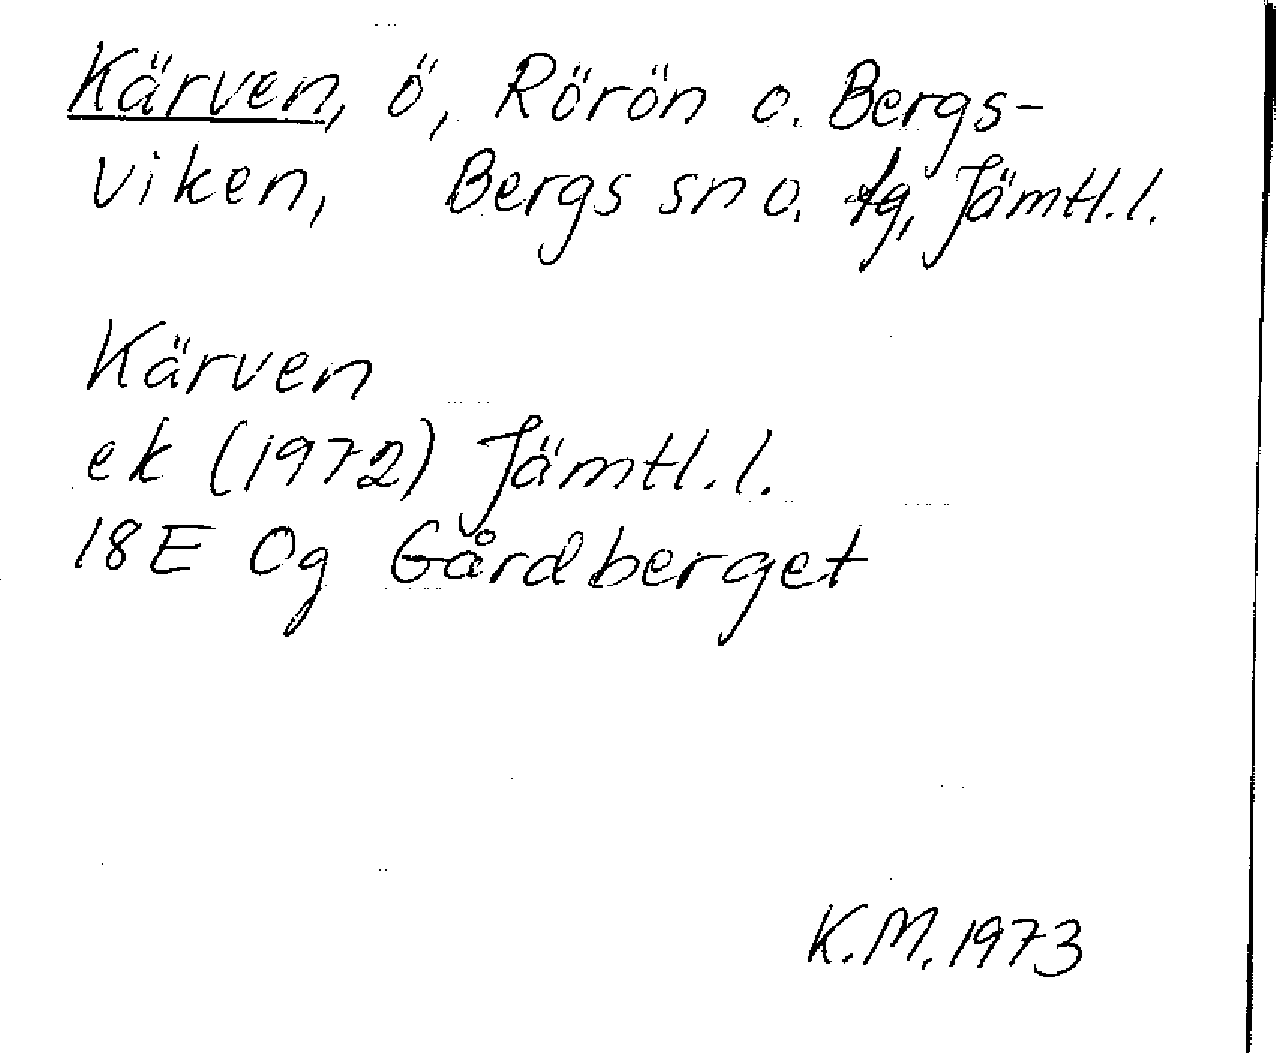 Kärven, ö, Rörön o. Bergs-
viken, Bergs sn o. tg, Jämtl. l.
Kärven
ek (1972) Jämtl. l.
18E 0g Gårdberget
K.M. 1973